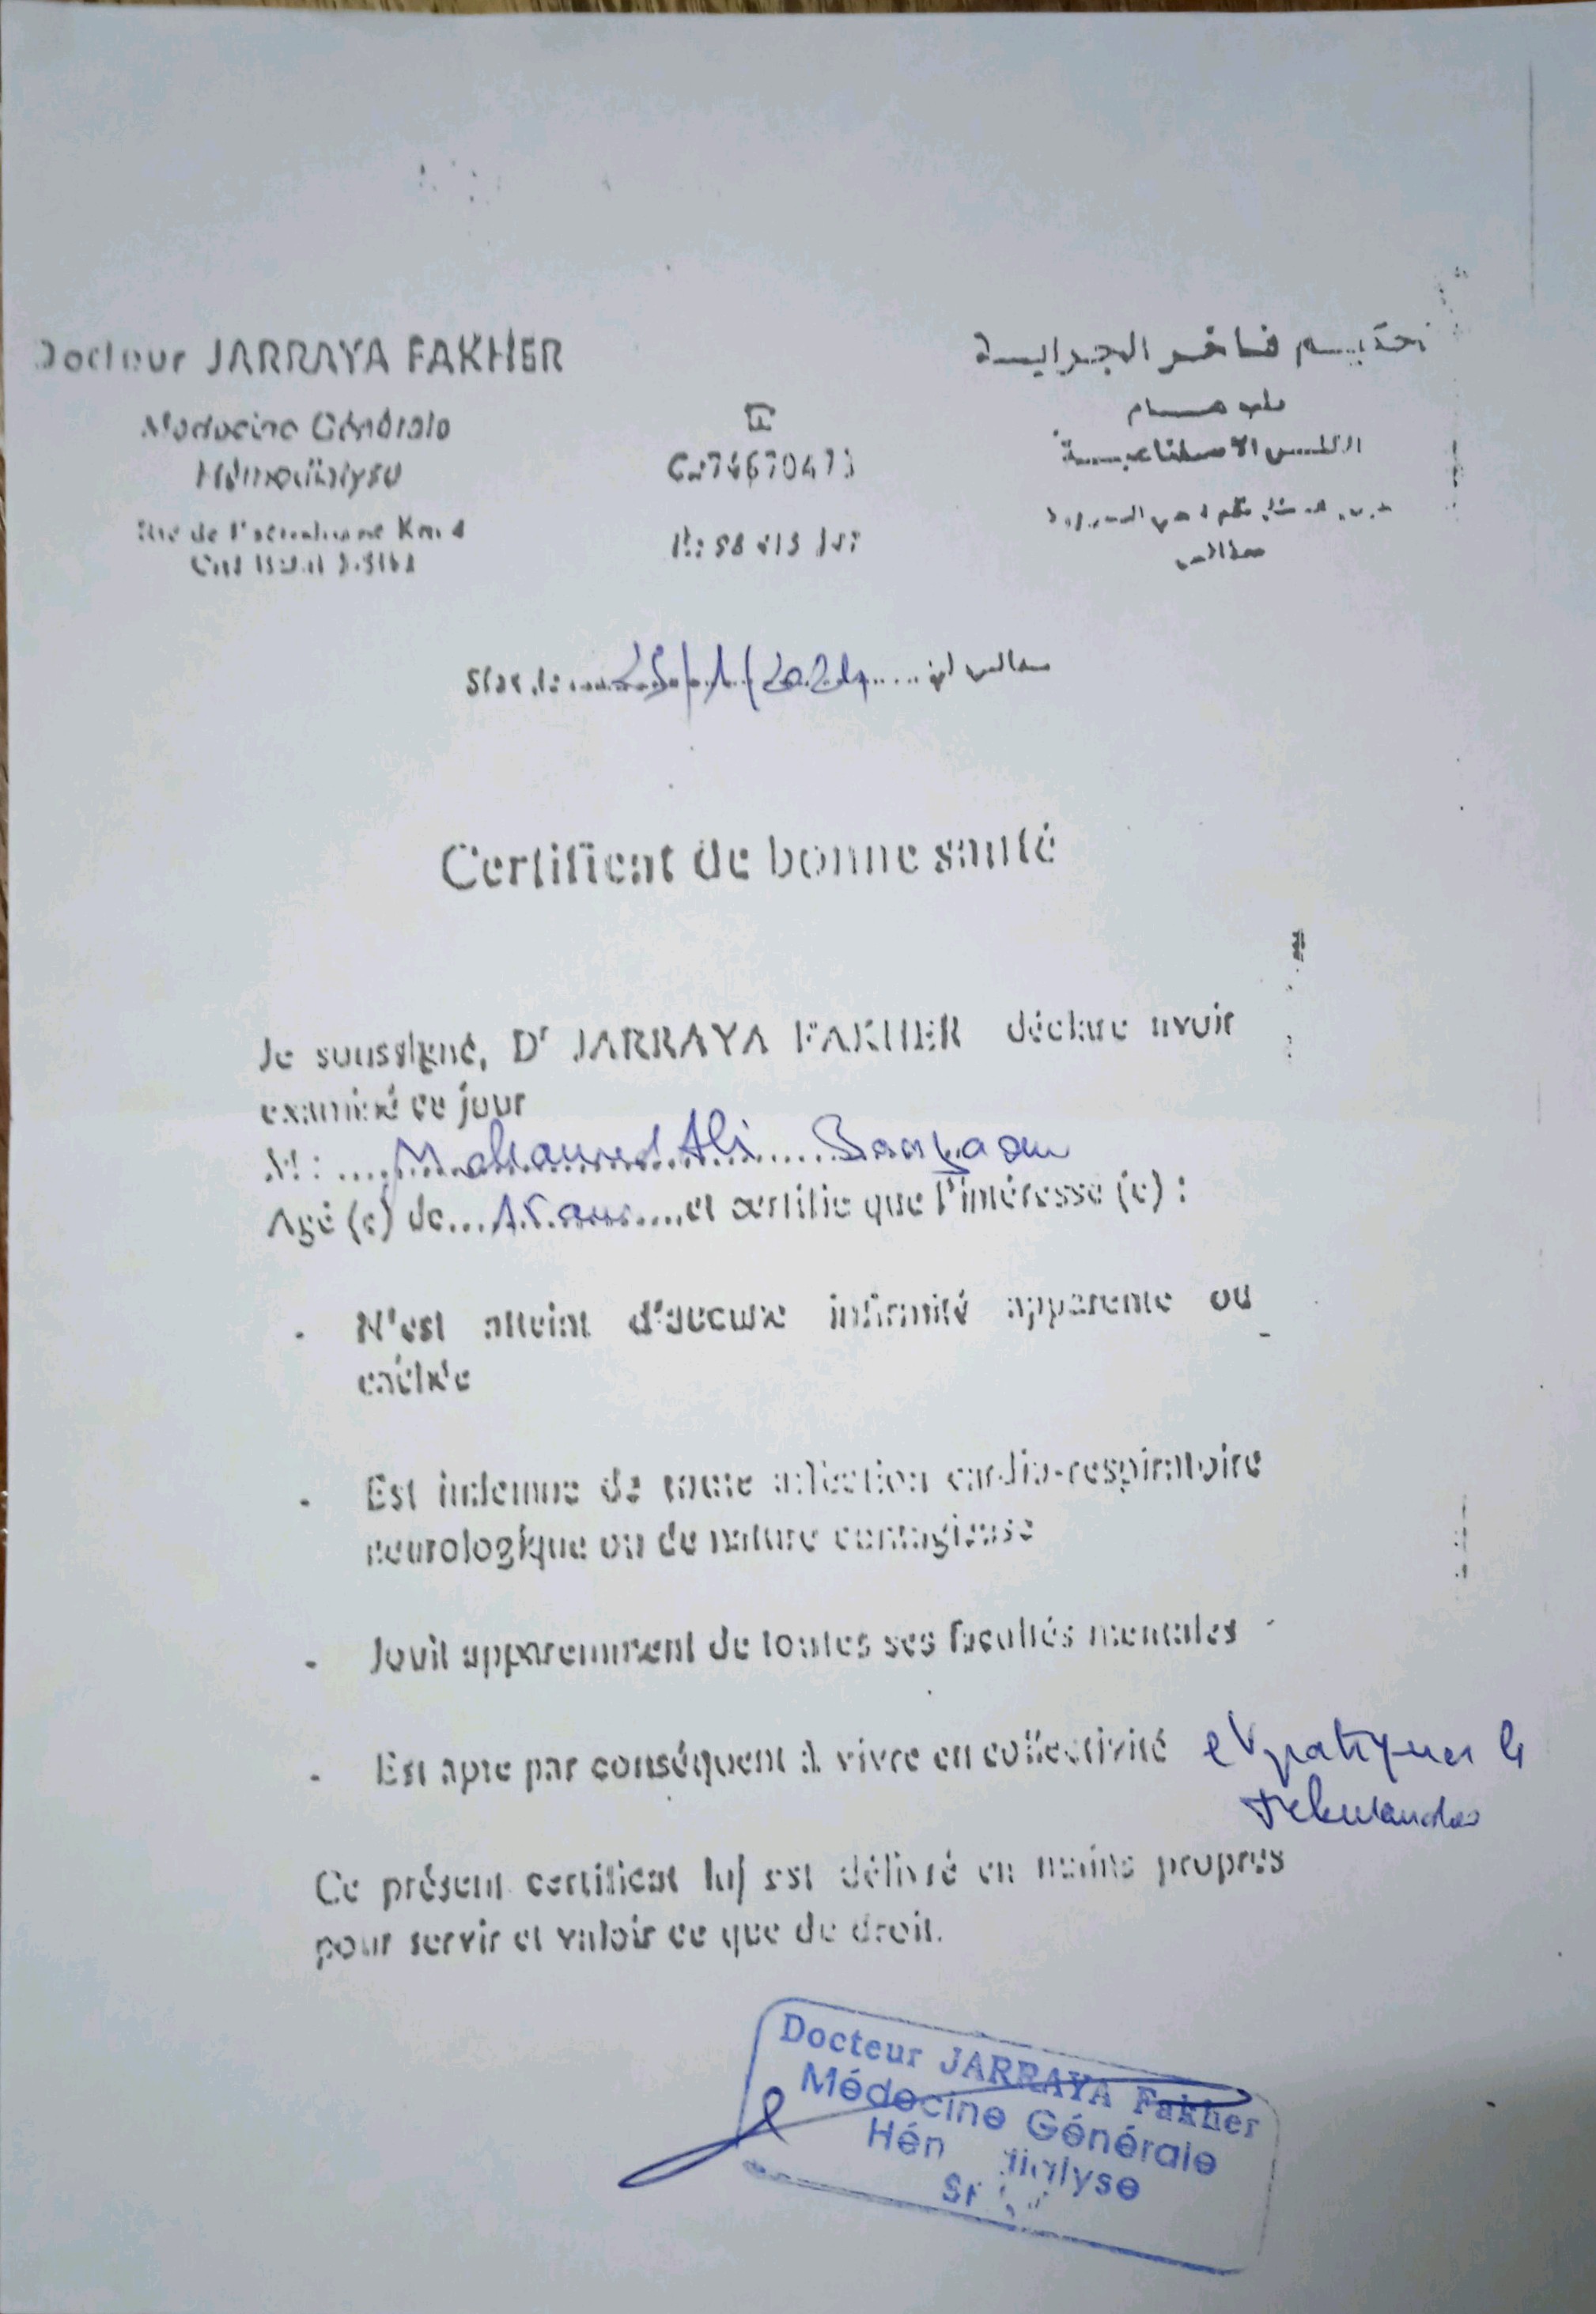 Docteur JARRAYA FAKHER
Médecine Générale
Hémodialyse
Km 4
حكيم فاخر الجراية
طب عام
الكلى الاصطناعية
صفاقس
Sfax, le ..... 25/1/2024 ..... صفاقس في
Certificat de bonne santé
Je soussigné, Dr JARRAYA FAKHER déclare avoir
examiné ce jour
M : .... Mohamed Ali
Agé (e) de... 15 ans ....et certifie que l'intéressé (e) :
- N'est atteint d'aucune infirmité apparente ou
cachée
- Est indemne de toute affection cardio-respiratoire
neurologique ou de nature contagieuse
- Jouit apparemment de toutes ses facultés mentales
- Est apte par conséquent à vivre en collectivité et pratiquer le
Ce présent certificat lui est délivré en mains propres
pour servir et valoir ce que de droit.
Docteur JARRAYA Fakher
Médecine Générale